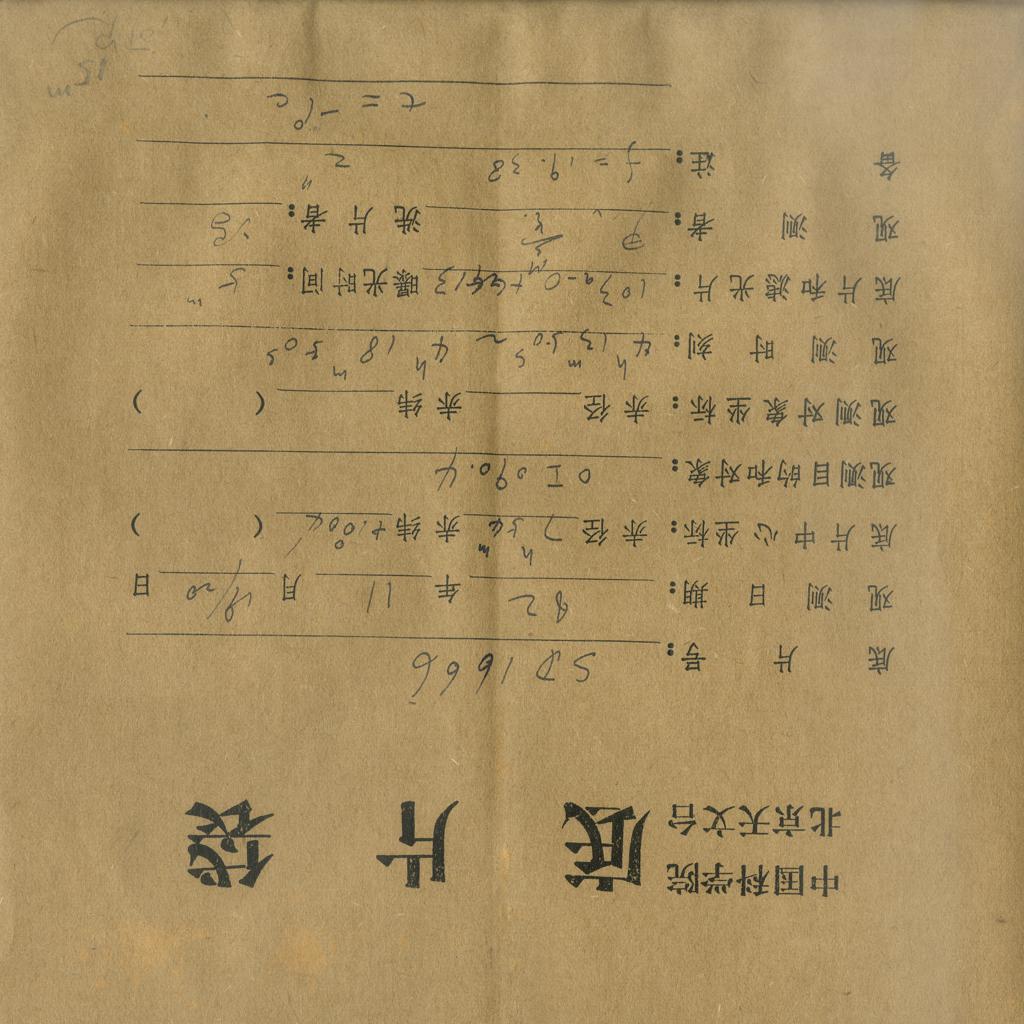 中国科学院
北京天文台
底片袋
底片号: SD1666
观测日期: 82年11月19/20日
底片中心坐标: 赤径7ʰ54ᵐ赤纬+1°00' ( )
观测目的和对象: OI 090.4
观测对象坐标: 赤径 赤纬 ( )
观测时刻: 4ʰ13ᵐ50ˢ ~ 4ʰ18ᵐ50ˢ
底片和滤光片: 103a-O+GG13 曝光时间: 5ᵐ
观测者: 洗片者:
备注: f=19.38
t = -1°C
15ᵐ